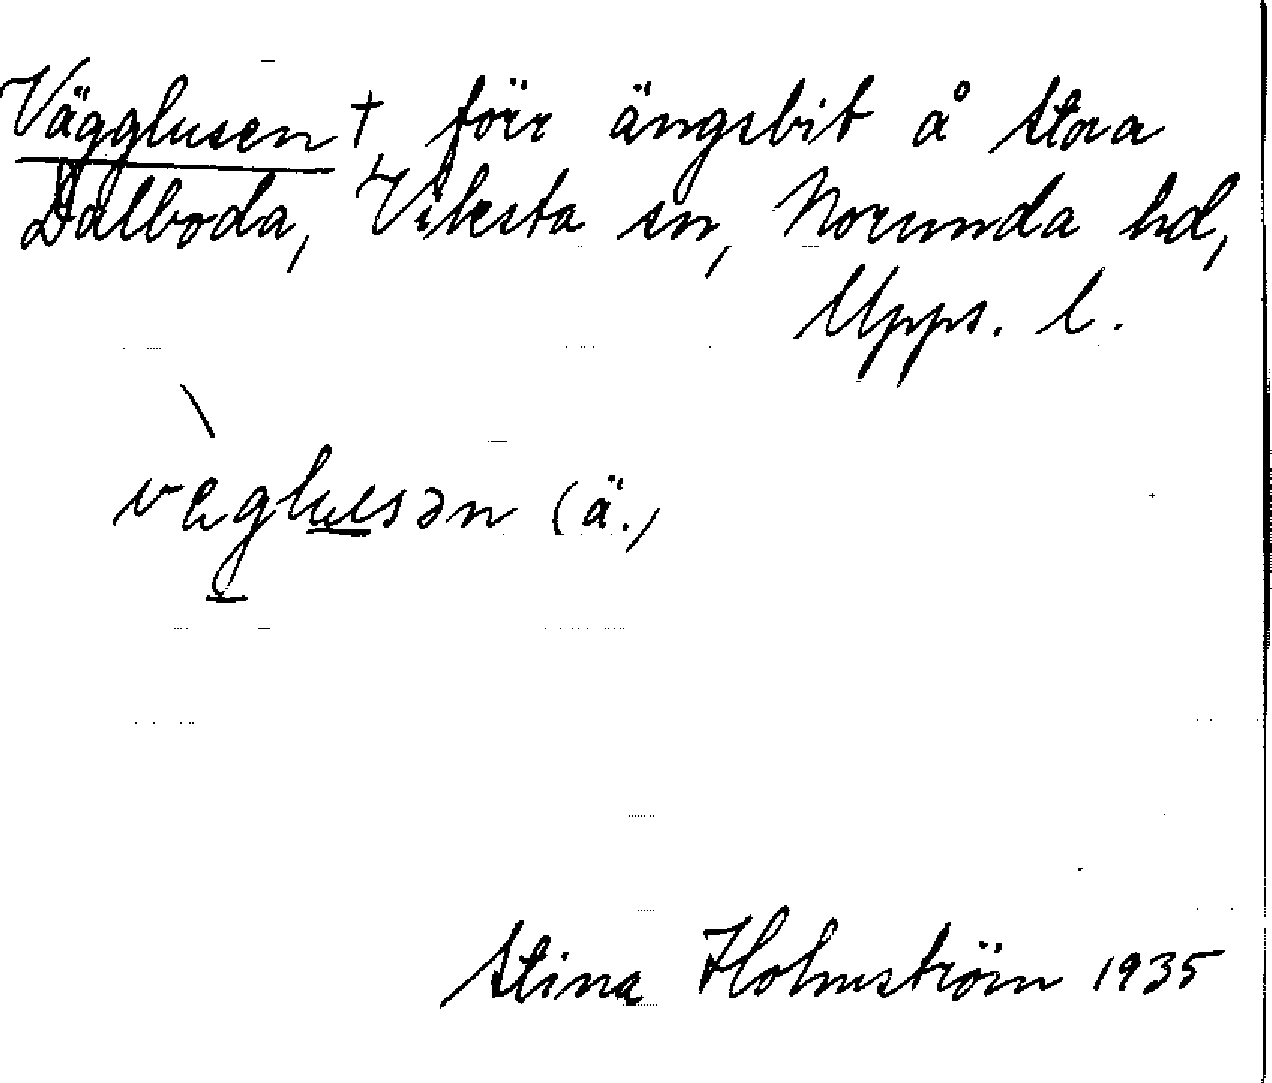 Vägglusen †, förr ängsbit å Stora
Dalboda, Viksta sn, Norunda hd,
Upps. l.
väglusən (ä.)
Stina Holmström 1935